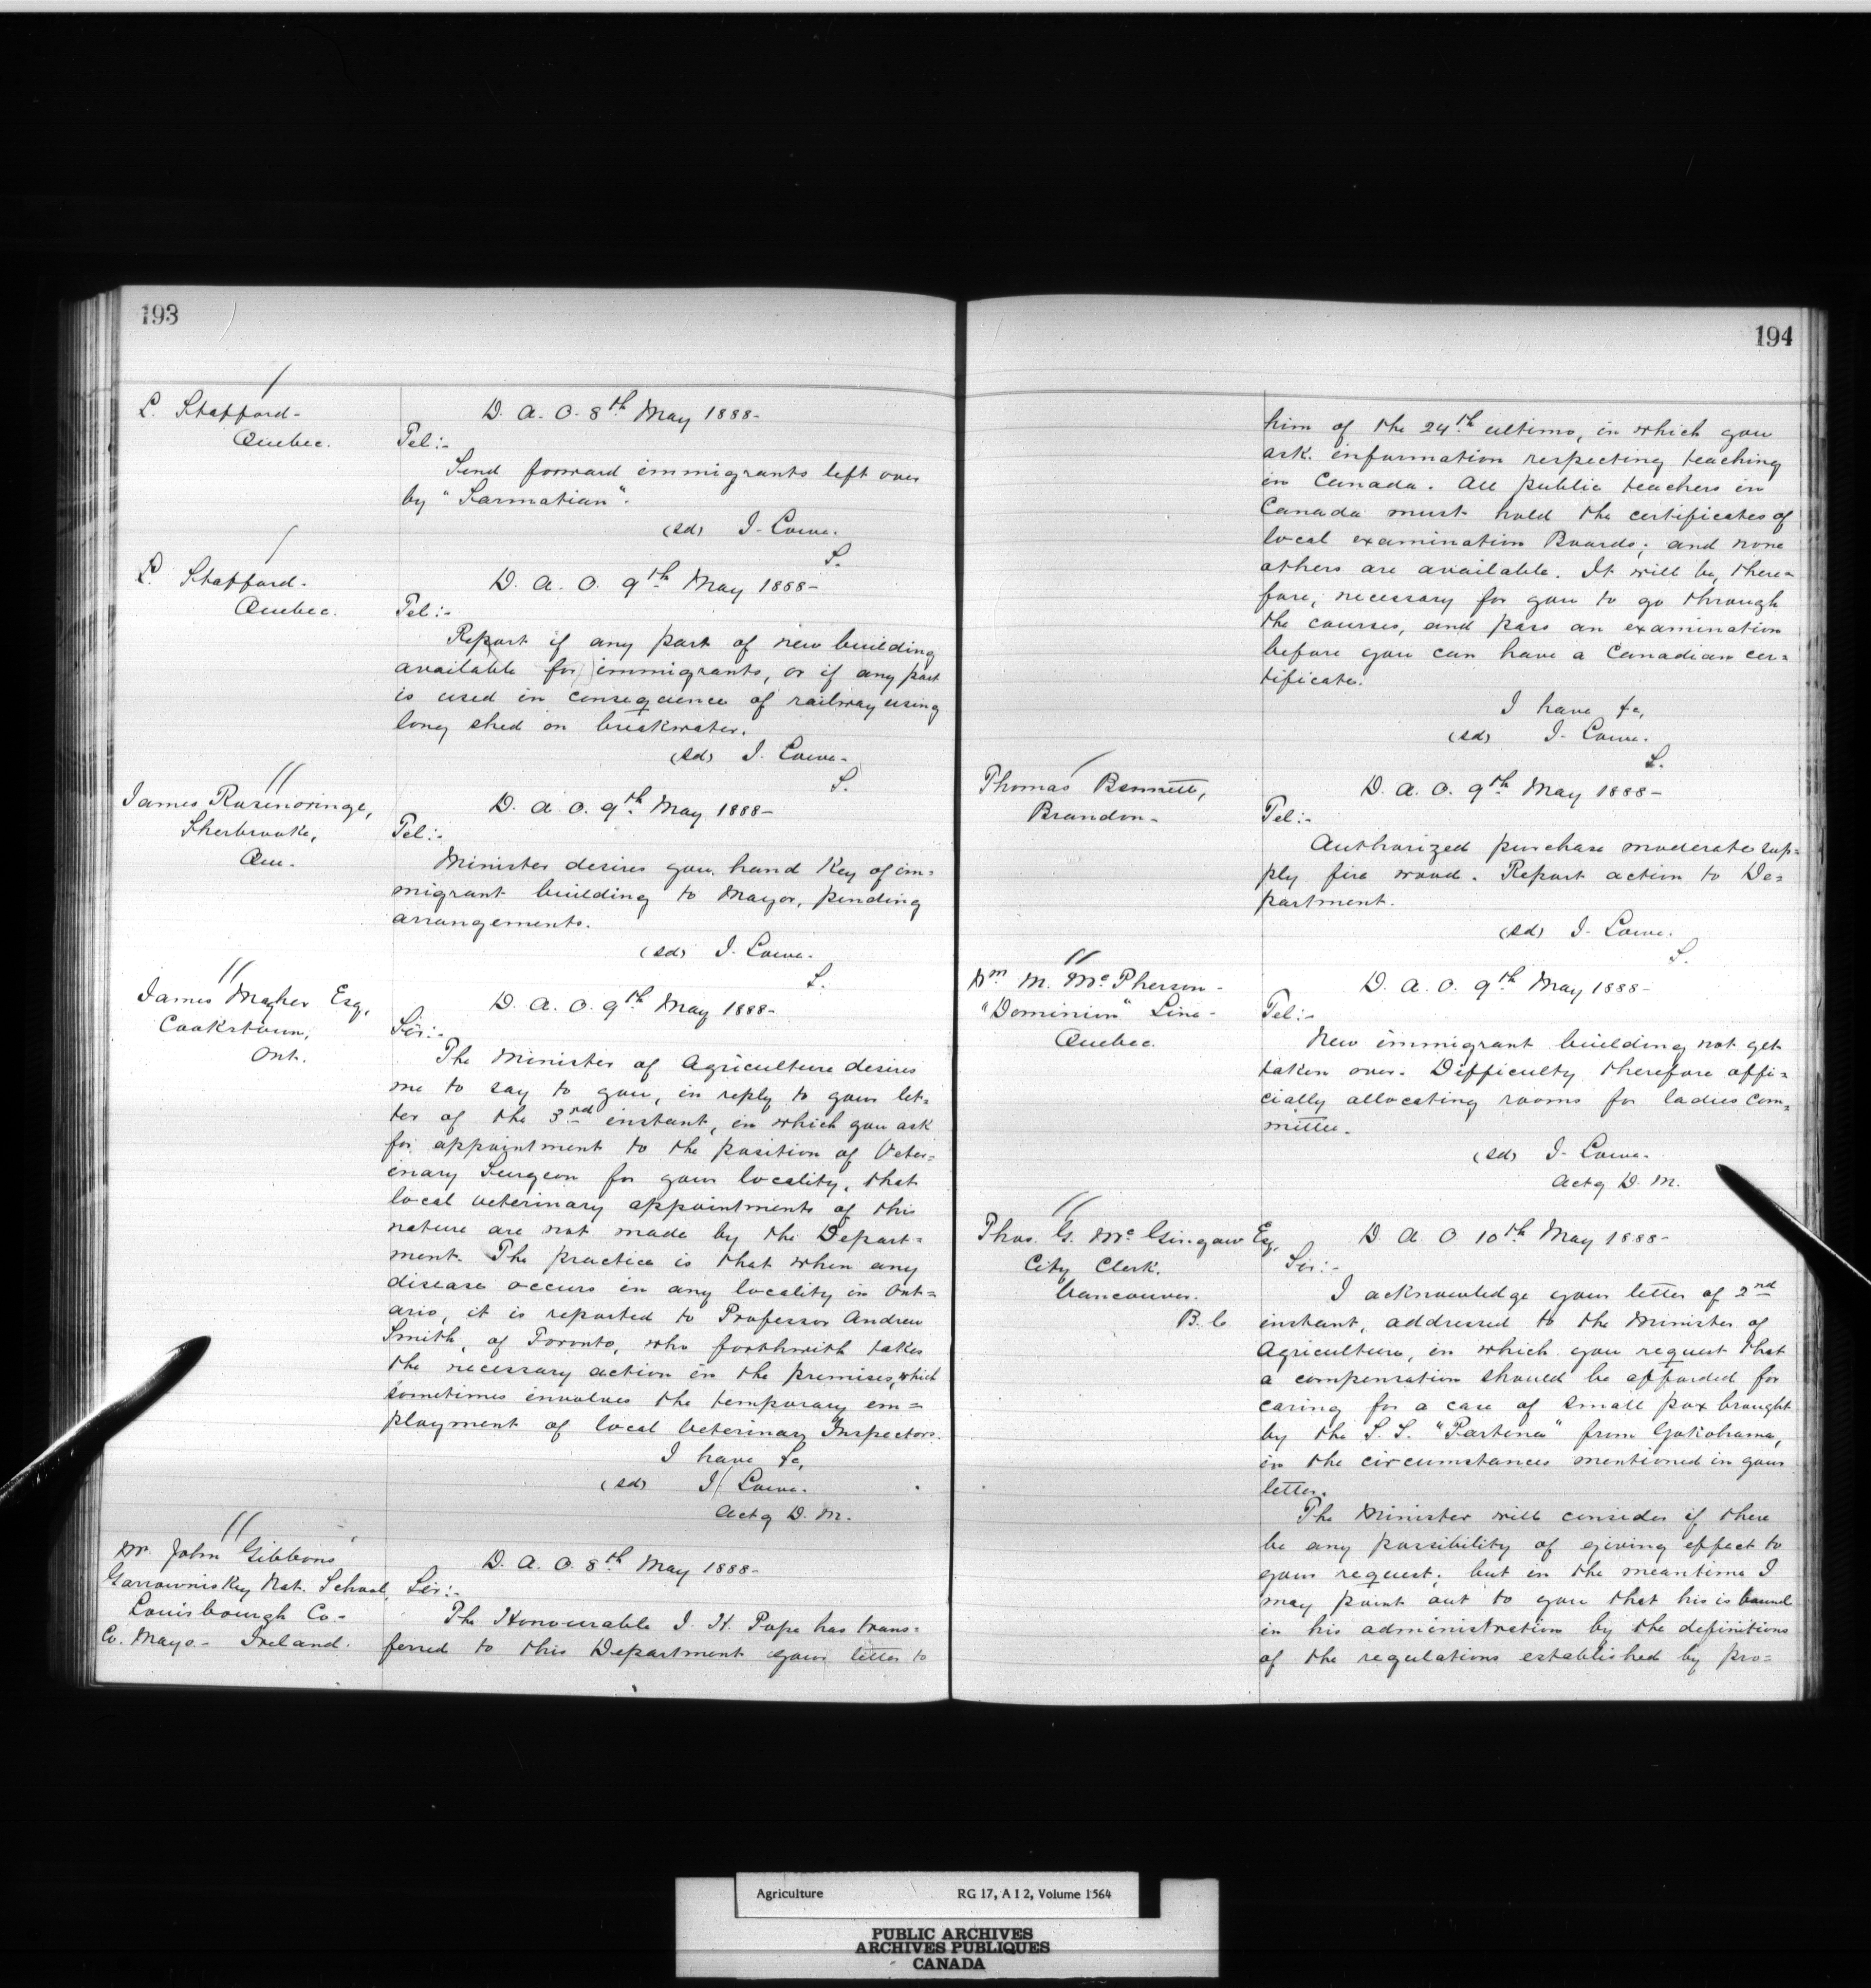 193
L. Stafford -
Quebec.
D. A. O. 8th May 1888 -
Tel :-
Send forward immigrants left over
by "Sarmatian".
(sd) J. Lowe.
S.
L. Stafford -
Quebec.
D. A. O. 9th May 1888 -
Tel :-
Report if any part of new building
available for immigrants, or if any part
is used in consequence of railway using
long shed on breakwater.
(sd) J. Lowe -
S.
James
Sherbrooke,
Que.
D. A. O. 9th May 1888 -
Tel :-
Minister desires you hand Key of im=
migrant building to Mayor, pending
arrangements.
(sd) J. Lowe.
S.
James Magher Esq,
Cookstown,
Ont.
D. A. O. 9th May 1888 -
Sir :-
The Minister of Agriculture desires
me to say to you, in reply to your let=
ter of the 3rd instant, in which you ask
for appointment to the position of Veter=
inary Surgeon for your locality, that
local veterinary appointments of this
nature are not made by the Depart=
ment. The practice is that when any
disease occurs in any locality in Ont=
ario, it is reported to Professor Andrew
Smith, of Toronto, who forthwith takes
the necessary action in the premises, which
sometimes involves the temporary em=
ployment of local Veterinary Inspectors.
I have &c,
(sd) J. Lowe.
Actg D. M.
Mr. John Gibbons
Nat. School,
Louisbourgh Co -
Co. Mayo - Ireland.
D. A. O. 8th May 1888 -
Sir :-
The Honourable J. H. Pope has trans=
ferred to this Department your letter to
194
him of the 24th ultimo, in which you
ask information respecting teaching
in Canada. All public teachers in
Canada must hold the certificates of
local examination Boards; and none
others are available. It will be, there=
fore, necessary for you to go through
the courses, and pass an examination
before you can have a Canadian cer=
tificate.
I have &c,
(sd) J. Lowe.
S.
Thomas Bennett,
Brandon -
D. A. O. 9th May 1888 -
Tel :-
Authorized purchase moderate sup=
ply fire wood. Report action to De=
partment.
(sd) J. Lowe.
S.
Wm M. McPherson -
"Dominion" Line -
Quebec.
D. A. O. 9th May 1888 -
Tel :-
New immigrant building not yet
taken over. Difficulty therefore offi=
cially allocating rooms for ladies com=
mittee.
(sd) J. Lowe -
Actg D. M.
Thos. G. Esq,
City Clerk.
Vancouver.
B. C.
D. A. O. 10th May 1888 -
Sir :-
I acknowledge your letter of 2nd
instant, addressed to the Minister of
Agriculture, in which you request that
a compensation should be afforded for
caring for a case of small pox brought
by the S. S. from Yokohama,
in the circumstances mentioned in your
letter.
The Minister will consider if there
be any possibility of giving effect to
your request; but in the meantime I
may point out to you that his is bound
in his administration by the definitions
of the regulations established by pro=
Agriculture RG 17, A I 2, Volume 1564
PUBLIC ARCHIVES
ARCHIVES PUBLIQUES
CANADA